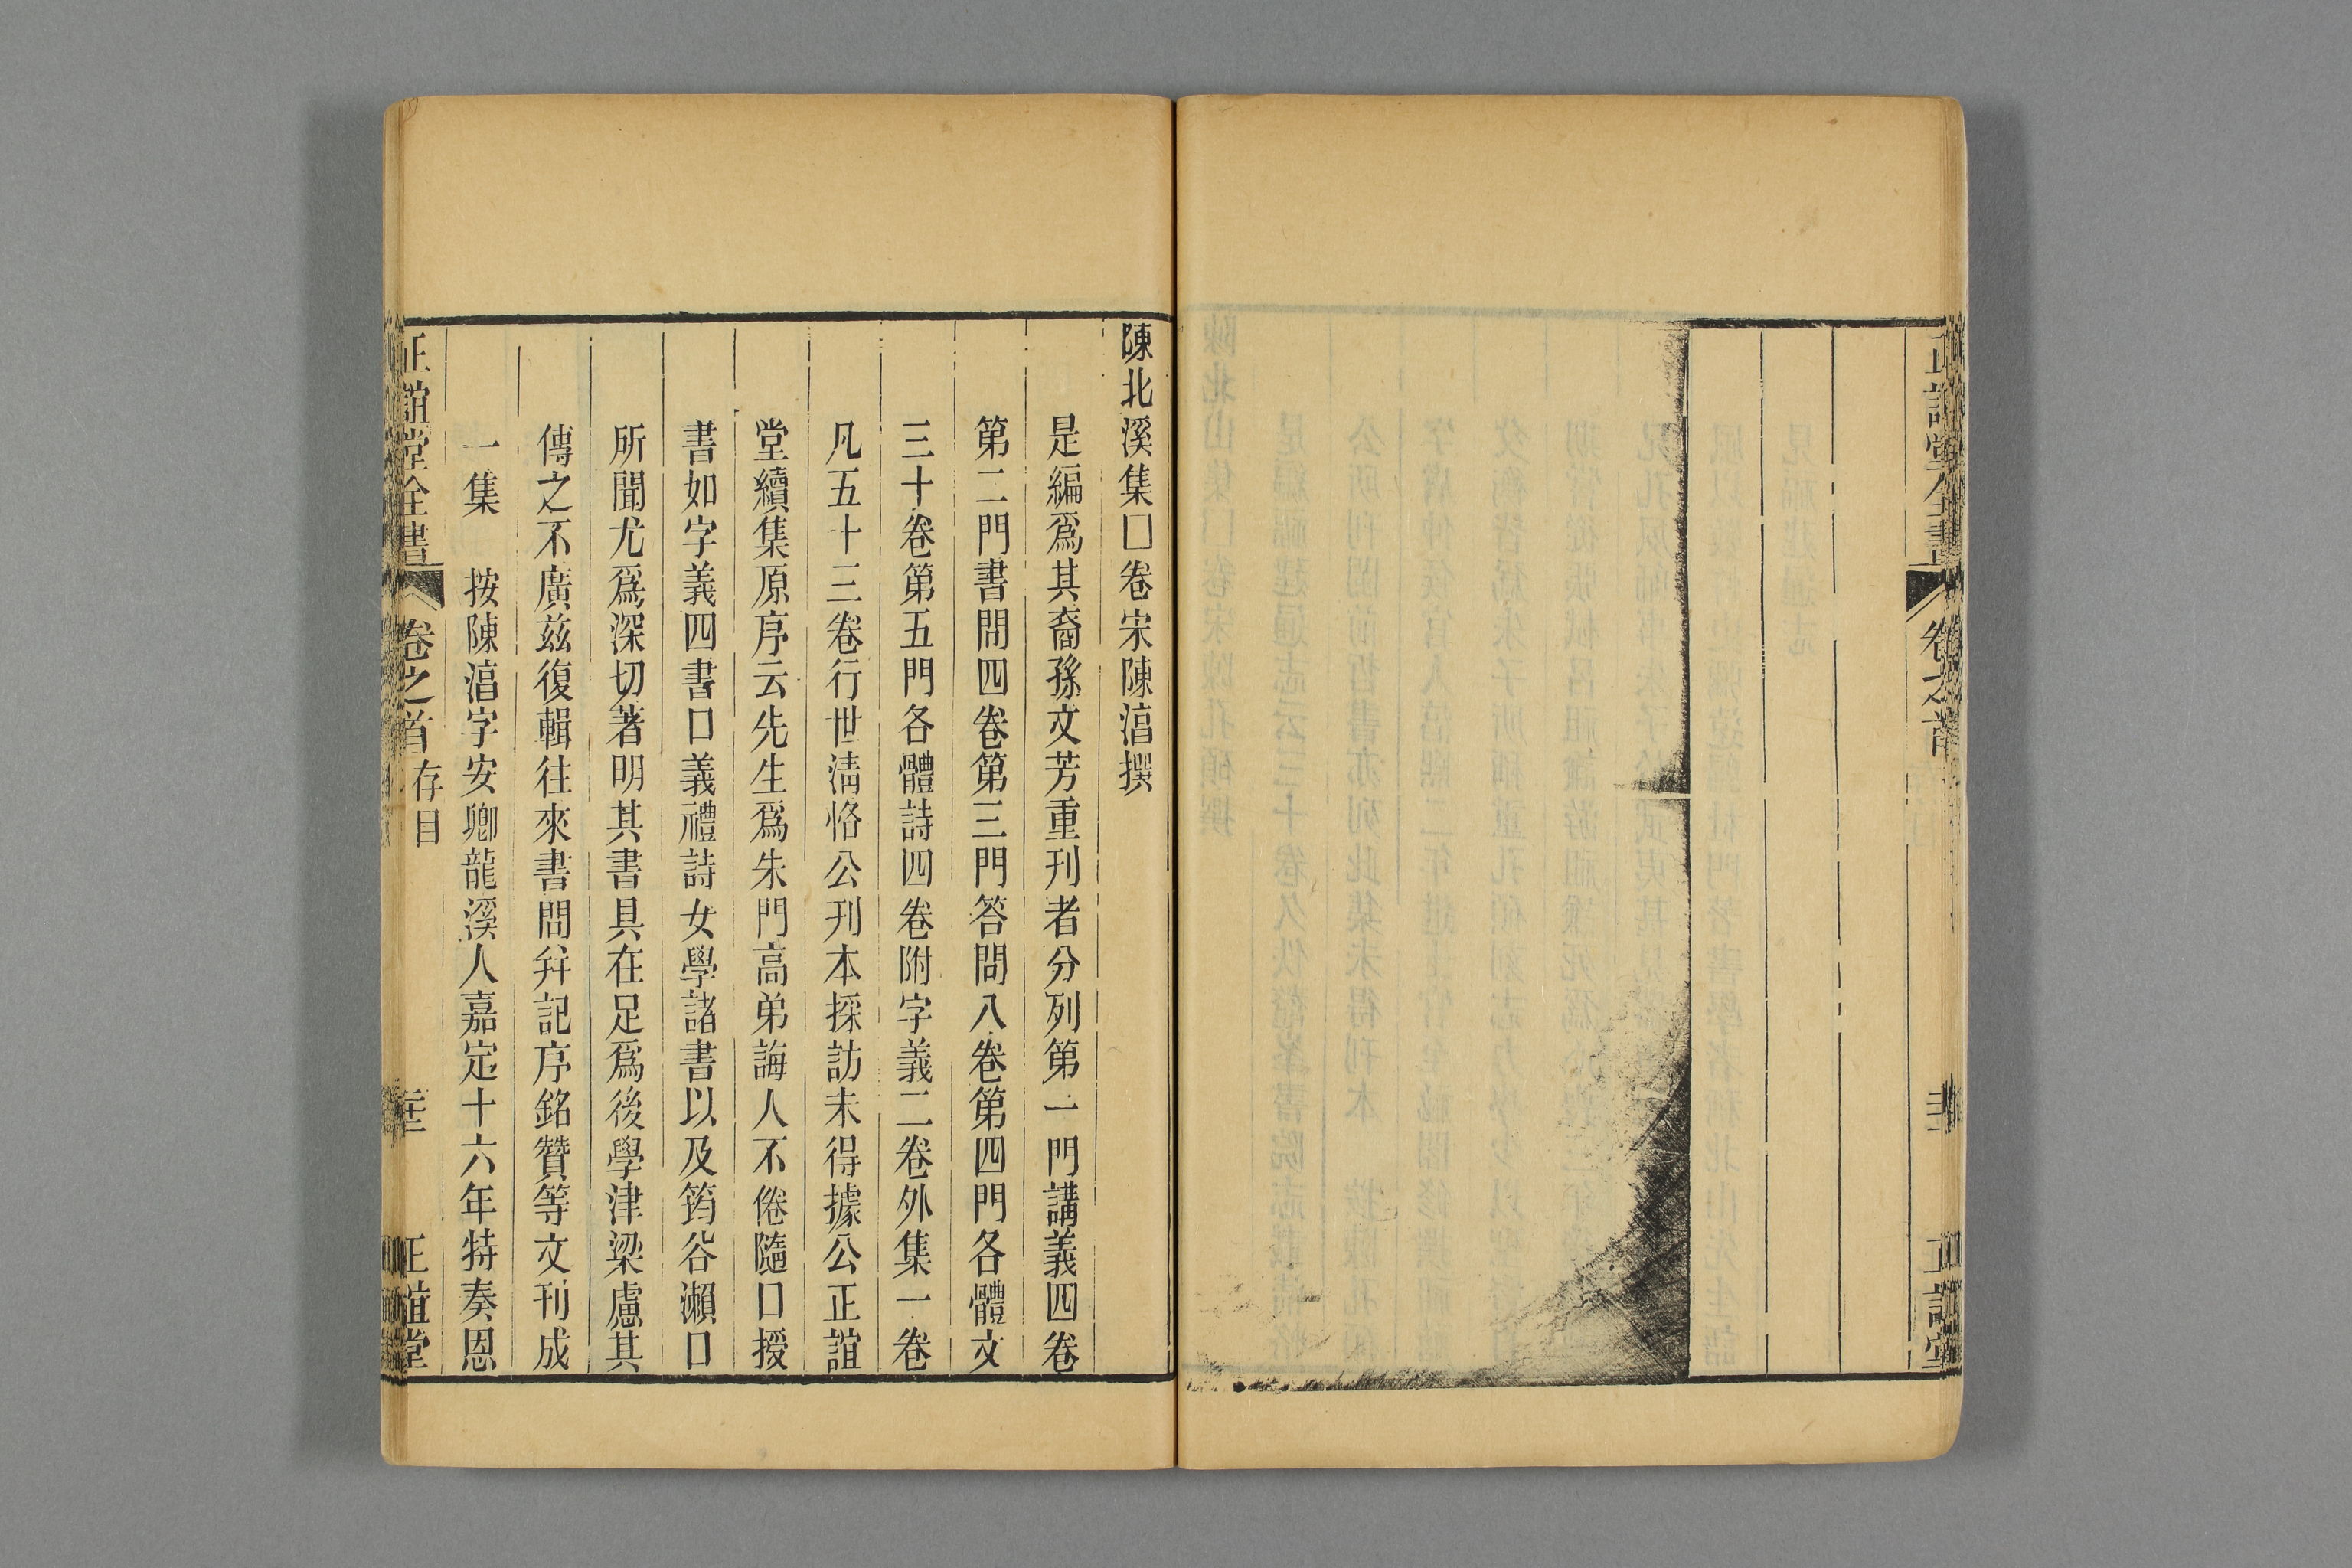 正誼堂全書 卷之首
正誼堂
陳北溪集囗卷宋陳淳撰
是編爲其裔孫文芳重刊者分列第一門講義四卷
第二門書問四卷第三門答問八卷第四門各體文
三十卷第五門各體詩四卷附字義二卷外集一卷
凡五十三卷行世淸恪公刊本採訪未得據公正誼
堂續集原序云先生爲朱門高弟誨人不倦隨口授
書如字義四書口義禮詩女學諸書以及筠谷瀨口
所聞尤爲深切著明其書具在足爲後學津梁慮其
傳之不廣茲復輯往來書問幷記序銘贊等文刊成
一集 按陳淳字安卿龍溪人嘉定十六年特奏恩
正誼堂全書 卷之首 存目
正誼堂